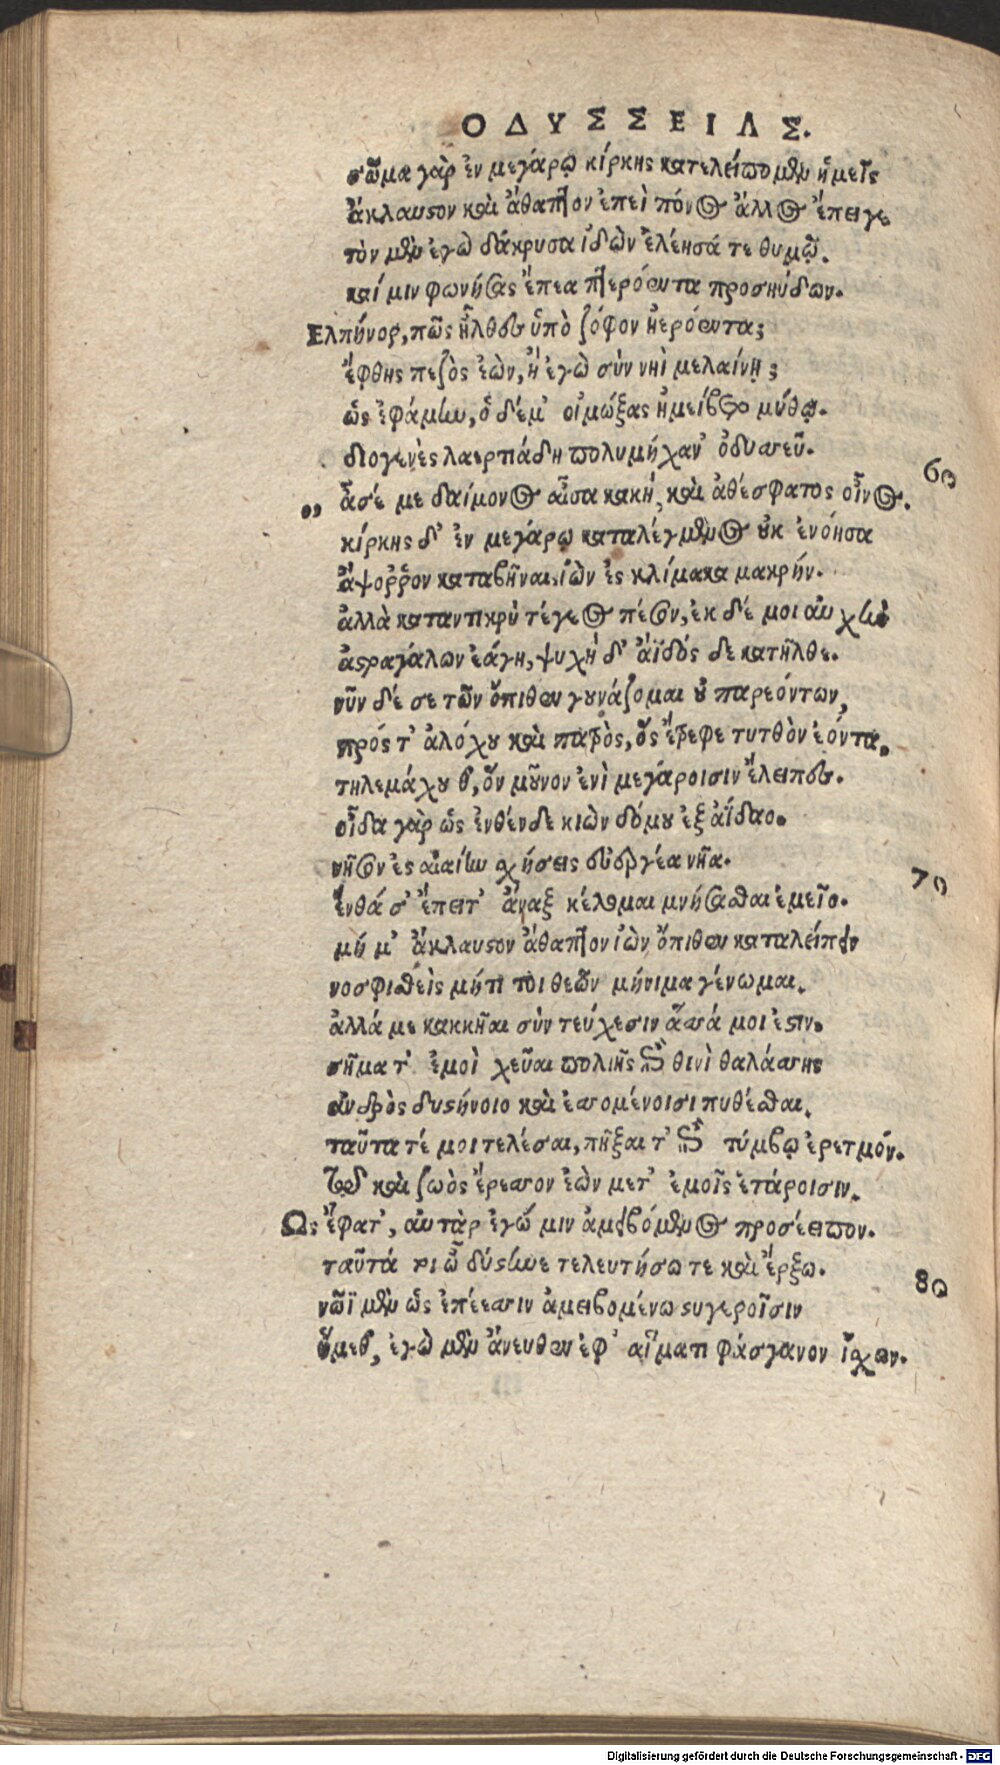 ΟΔΥΣΣΕΙΑΣ.
σῶμα γὰρ ἐν μεγάρῳ κίρκης κατελείπομεν ἡμεῖς
ἄκλαυστον καὶ ἄθαπτον ἐπεὶ πόνος ἄλλος ἔπειγε
τὸν μὲν ἐγὼ δάκρυσα ἰδὼν ἐλέησά τε θυμῷ.
καί μιν φωνήσας ἔπεα πτερόεντα προσηύδων.
Ἐλπήνορ, πῶς ἦλθες ὑπὸ ζόφον ἠερόεντα;
ἔφθης πεζὸς ἐὼν, ἢ ἐγὼ σὺν νηὶ μελαίνῃ;
ὣς ἐφάμην, ὁ δέ μ' οἰμώξας ἠμείβετο μύθῳ.
διογενὲς λαερτιάδη πολυμήχαν' ὀδυσσεῦ.
60
,, ἆσέ με δαίμονος αἶσα κακή, καὶ ἀθέσφατος οἶνος.
κίρκης δ' ἐν μεγάρῳ καταλέγμενος οὐκ ἐνόησα
ἄψοῤῥον καταβῆναι ἰὼν ἐς κλίμακα μακρήν.
ἀλλὰ καταντικρὺ τέγεος πέσον, ἐκ δέ μοι αὐχὴν
ἀστραγάλων ἐάγη, ψυχὴ δ' ἄϊδός δε κατῆλθε.
νῦν δέ σε τῶν ὄπιθεν γουνάζομαι οὐ παρεόντων,
πρός τ' ἀλόχου καὶ πατρὸς, ὅς ἔτρεφε τυτθὸν ἐόντα.
τηλεμάχου θ', ὃν μοῦνον ἐνὶ μεγάροισιν ἔλειπες.
οἶδα γὰρ ὡς ἐνθένδε κιὼν δόμου ἐξ ἀΐδαο.
νῆσον ἐς αἰαίην σχήσεις εὐεργέα νῆα.
70
ἔνθά σ' ἔπειτ' ἄναξ κέλομαι μνήσασθαι ἐμεῖο.
μή μ' ἄκλαυστον ἄθαπτον ἰὼν ὄπιθεν καταλείπειν
νοσφισθεὶς μήτι τοι θεῶν μήνιμα γένωμαι.
ἀλλά με κακκῆαι σὺν τεύχεσιν ἅσσά μοι ἐστιν.
σῆμα τ' ἐμοὶ χεῦαι πολιῆς ἐπὶ θινὶ θαλάσσης
ἀνδρὸς δυστήνοιο καὶ ἐσσομένοισι πυθέσθαι.
ταῦτα τέ μοι τελέσαι, πῆξαι τ' ἐπὶ τύμβῳ ἐρετμόν.
τῷ καὶ ζωὸς ἔρεσσον ἐὼν μετ' ἐμοῖς ἑτάροισιν.
Ὣς ἔφατ', αὐτὰρ ἐγώ μιν ἀμειβόμενος προσέειπον.
ταῦτά τοι ὦ δύστηνε τελευτήσω τε καὶ ἔρξω.
80
νῶϊ μὲν ὣς ἐπέεσσιν ἀμειβομένω στυγεροῖσιν
ἥμεθ', ἐγὼ μὲν ἄνευθεν ἐφ' αἵματι φάσγανον ἴσχων.
Digitalisierung gefördert durch die Deutsche Forschungsgemeinschaft - DFG